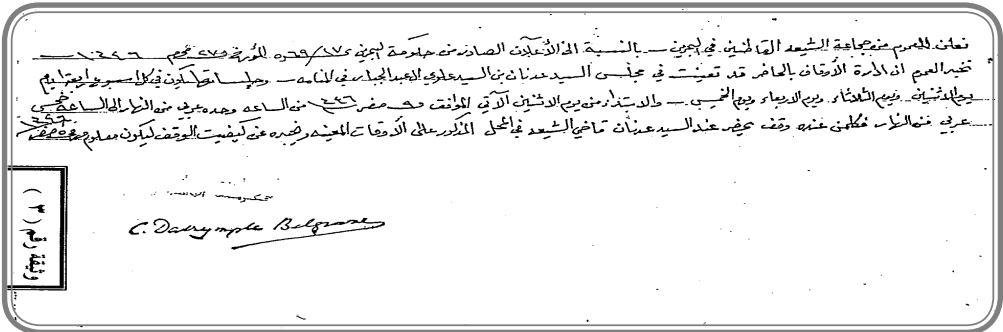 نعلن للعموم من جماعة الشيعة القاطنين في البحرين – بالنسبة الى الأعلان الصادر من حكومة البحرين ٥٦٩/١٧ المؤرخ ٢٧ محرم ١٣٤٦
نخبر العموم ان ادارة الأوقاف بالحاضر قد تعينت في مجلس السيد عدنان بن السيد علوي العبد الجبار في المنامه – وجلساتها تكون في كل اسبوع اربعة ايام
يوم الاثنين ويوم الثلاثاء ويوم الاربعاء ويوم الخميس – والابتداء من يوم الاثنين الآتي الموافق ٩ صفر ١٣٤٦ من الساعه وحده عربي من النهار الى الساعة خمس
عربي من النهار فكلمن عنده وقف يحضر عند السيد عدنان قاضي الشيعه في المحل المذكور على الأوقات المعينه ويخبره عن كيفيت الوقف ليكون معلوم
C. Dalrymple Belgrave
وثيقة رقم ( ٣ )